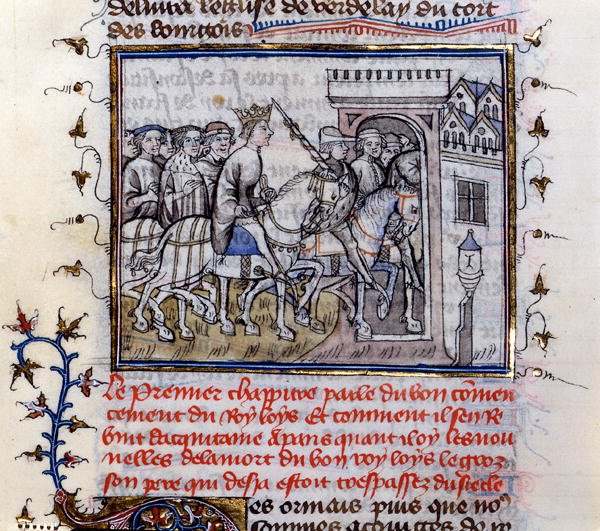 deliura leglise de verdelay du tort
des bourgois
Le Premier chappitre parle du bon cōmen
cement du Roy loys Et comment il sen R
vint dacquitaine a paris quant il oy les nou
uelles de la mort du bon roy loys le groz
son pere qui desia estoit trespassez du siecle
es ormais puis que no9